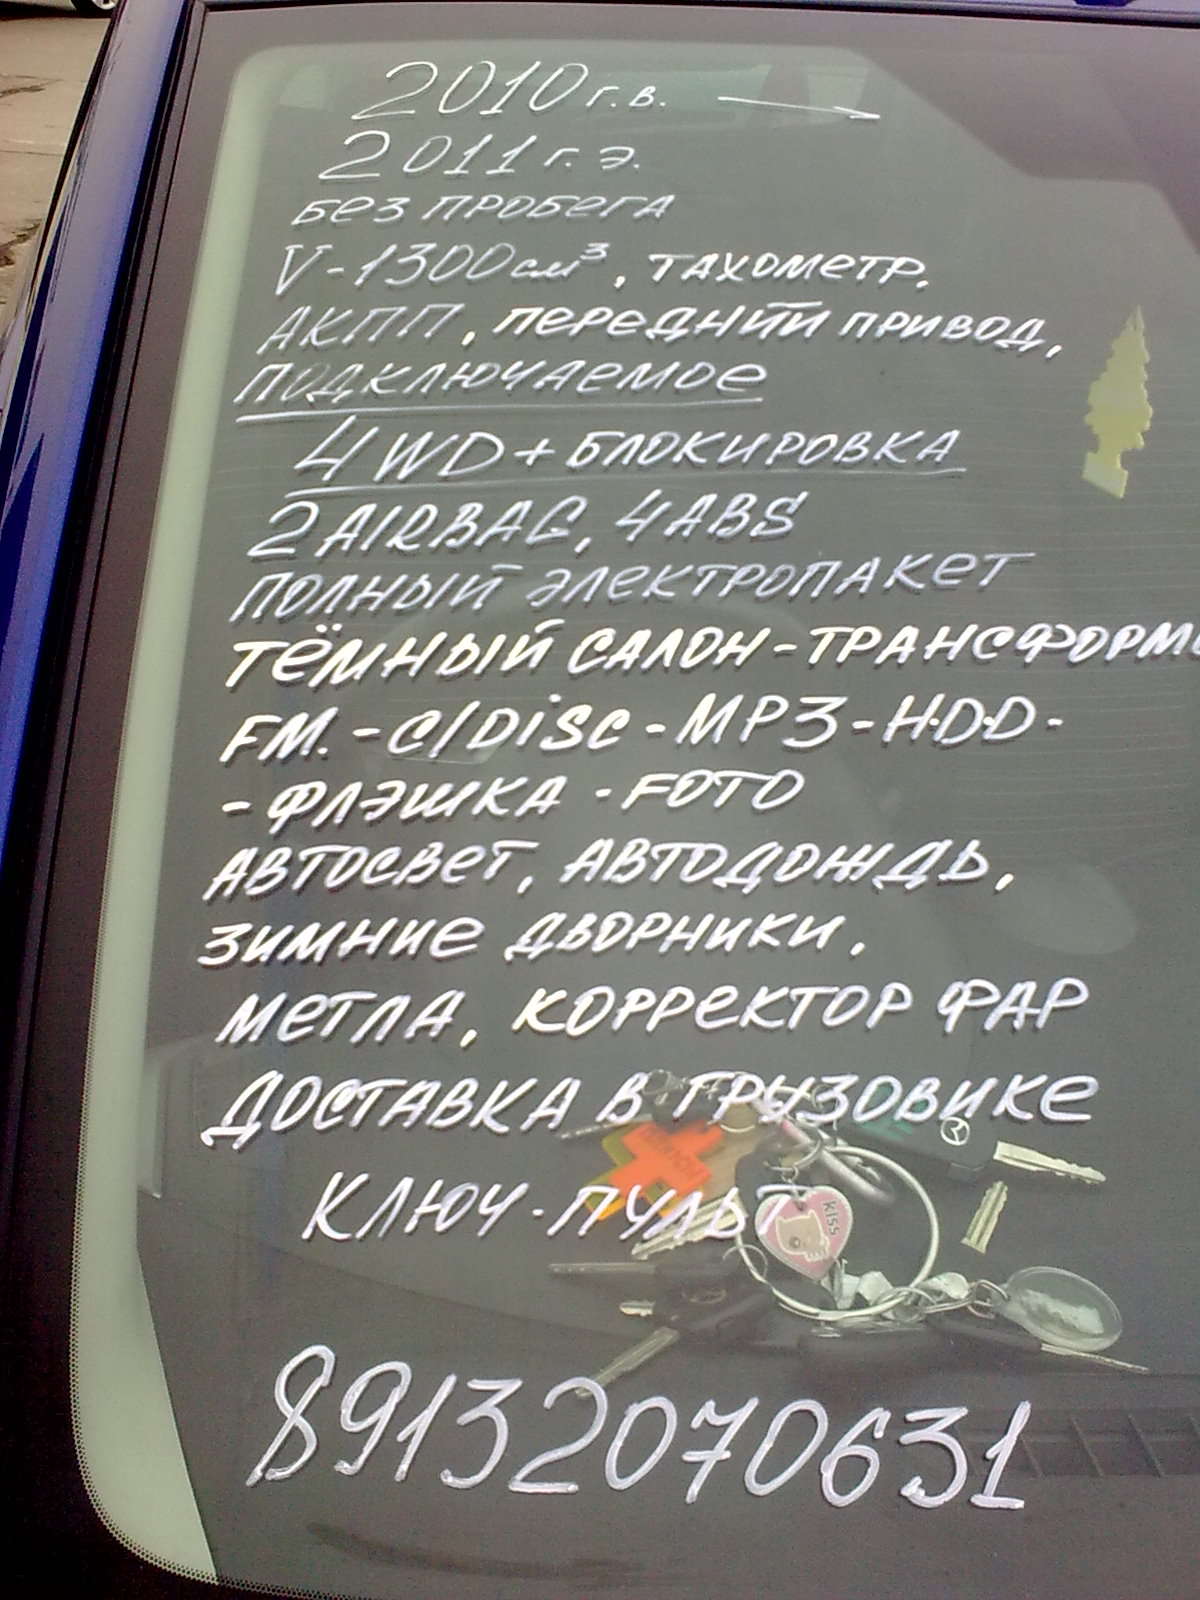 2010 г.в.
2011 г.э.
БЕЗ ПРОБЕГА
V-1300 см³, ТАХОМЕТР.
АКПП, ПЕРЕДНИЙ ПРИВОД,
ПОДКЛЮЧАЕМОЕ
4WD+БЛОКИРОВКА
2 AIRBAG, 4ABS
ПОЛНЫЙ ЭЛЕКТРОПАКЕТ
ТЁМНЫЙ САЛОН-ТРАНСФОРМ
FM.-C/DiSC-MP3-H.D.D-
-ФЛЭШКА-FOTO
АВТОСВЕТ, АВТОДОЖДЬ,
ЗИМНИЕ ДВОРНИКИ,
МЕТЛА, КОРРЕКТОР ФАР
ДОСТАВКА В ГРУЗОВИКЕ
КЛЮЧ-ПУЛЬТ
KISS
89132070631